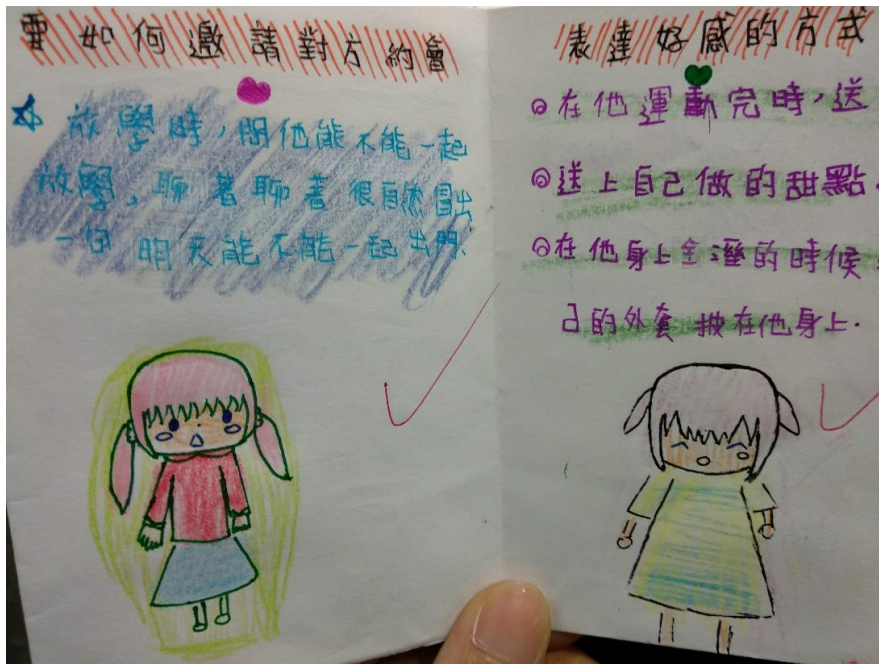 要如何邀請對方約會
放學時，問他能不能一起
放學，聊著聊著很自然冒出
一句明天能不能一起出門、
表達好感的方式
◎在他運動完時，送
◎送上自己做的甜點。
◎在他身上全溼的時候
己的外套披在他身上．